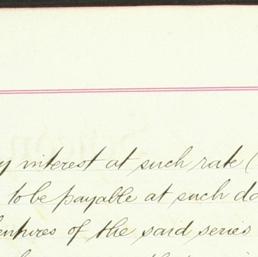 y interest at such rate (
to be payable at such da
entures of the said series